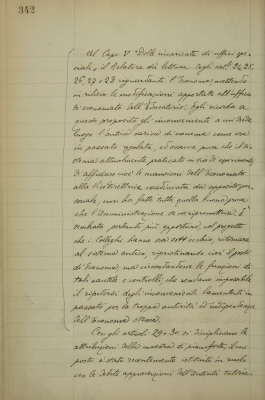 342
Al Capo V "Delle incaricate di uffici spe-
ciali, il Relatore dà lettura degli art.li 24, 25,
26, 27 e 28 riguardanti l'Economa, mettendo
in rilievo le modificazioni apportate all'ufficio
di economato dall'Ministero. Egli ricorda a
questo proposito gli inconvenienti a cui diede
luogo l'antica carica di economa come era
in passato regolata, ed osserva pure che il si-
stema attualmente praticato in via di esperimento
di affidare cioè le mansioni dell'Economato
alla Vicedirettrice coadiuvata da apposito per-
sonale, non ha fatto tutta quella buona prova
che l'Amministrazione se ne riprometteva. È
sembrato pertanto più opportuno, nel progetto
che i Colleghi hanno ora sott'occhio, ritornare
al sistema antico, ripristinando cioè il posto
di Economa, ma circondandone le funzioni di
tali cautele e controlli, che rendano impossibile
il ripetersi degli inconvenienti lamentati in
passato per la troppa autorità ed indipendenza
dell'Economa stessa.
Con gli articoli 29 e 30 si disciplinano le
attribuzioni della maestra di pianoforte, il cui
posto è stato recentemente istituito in ruolo
con le debite approvazioni dell'Autorità tutoria.